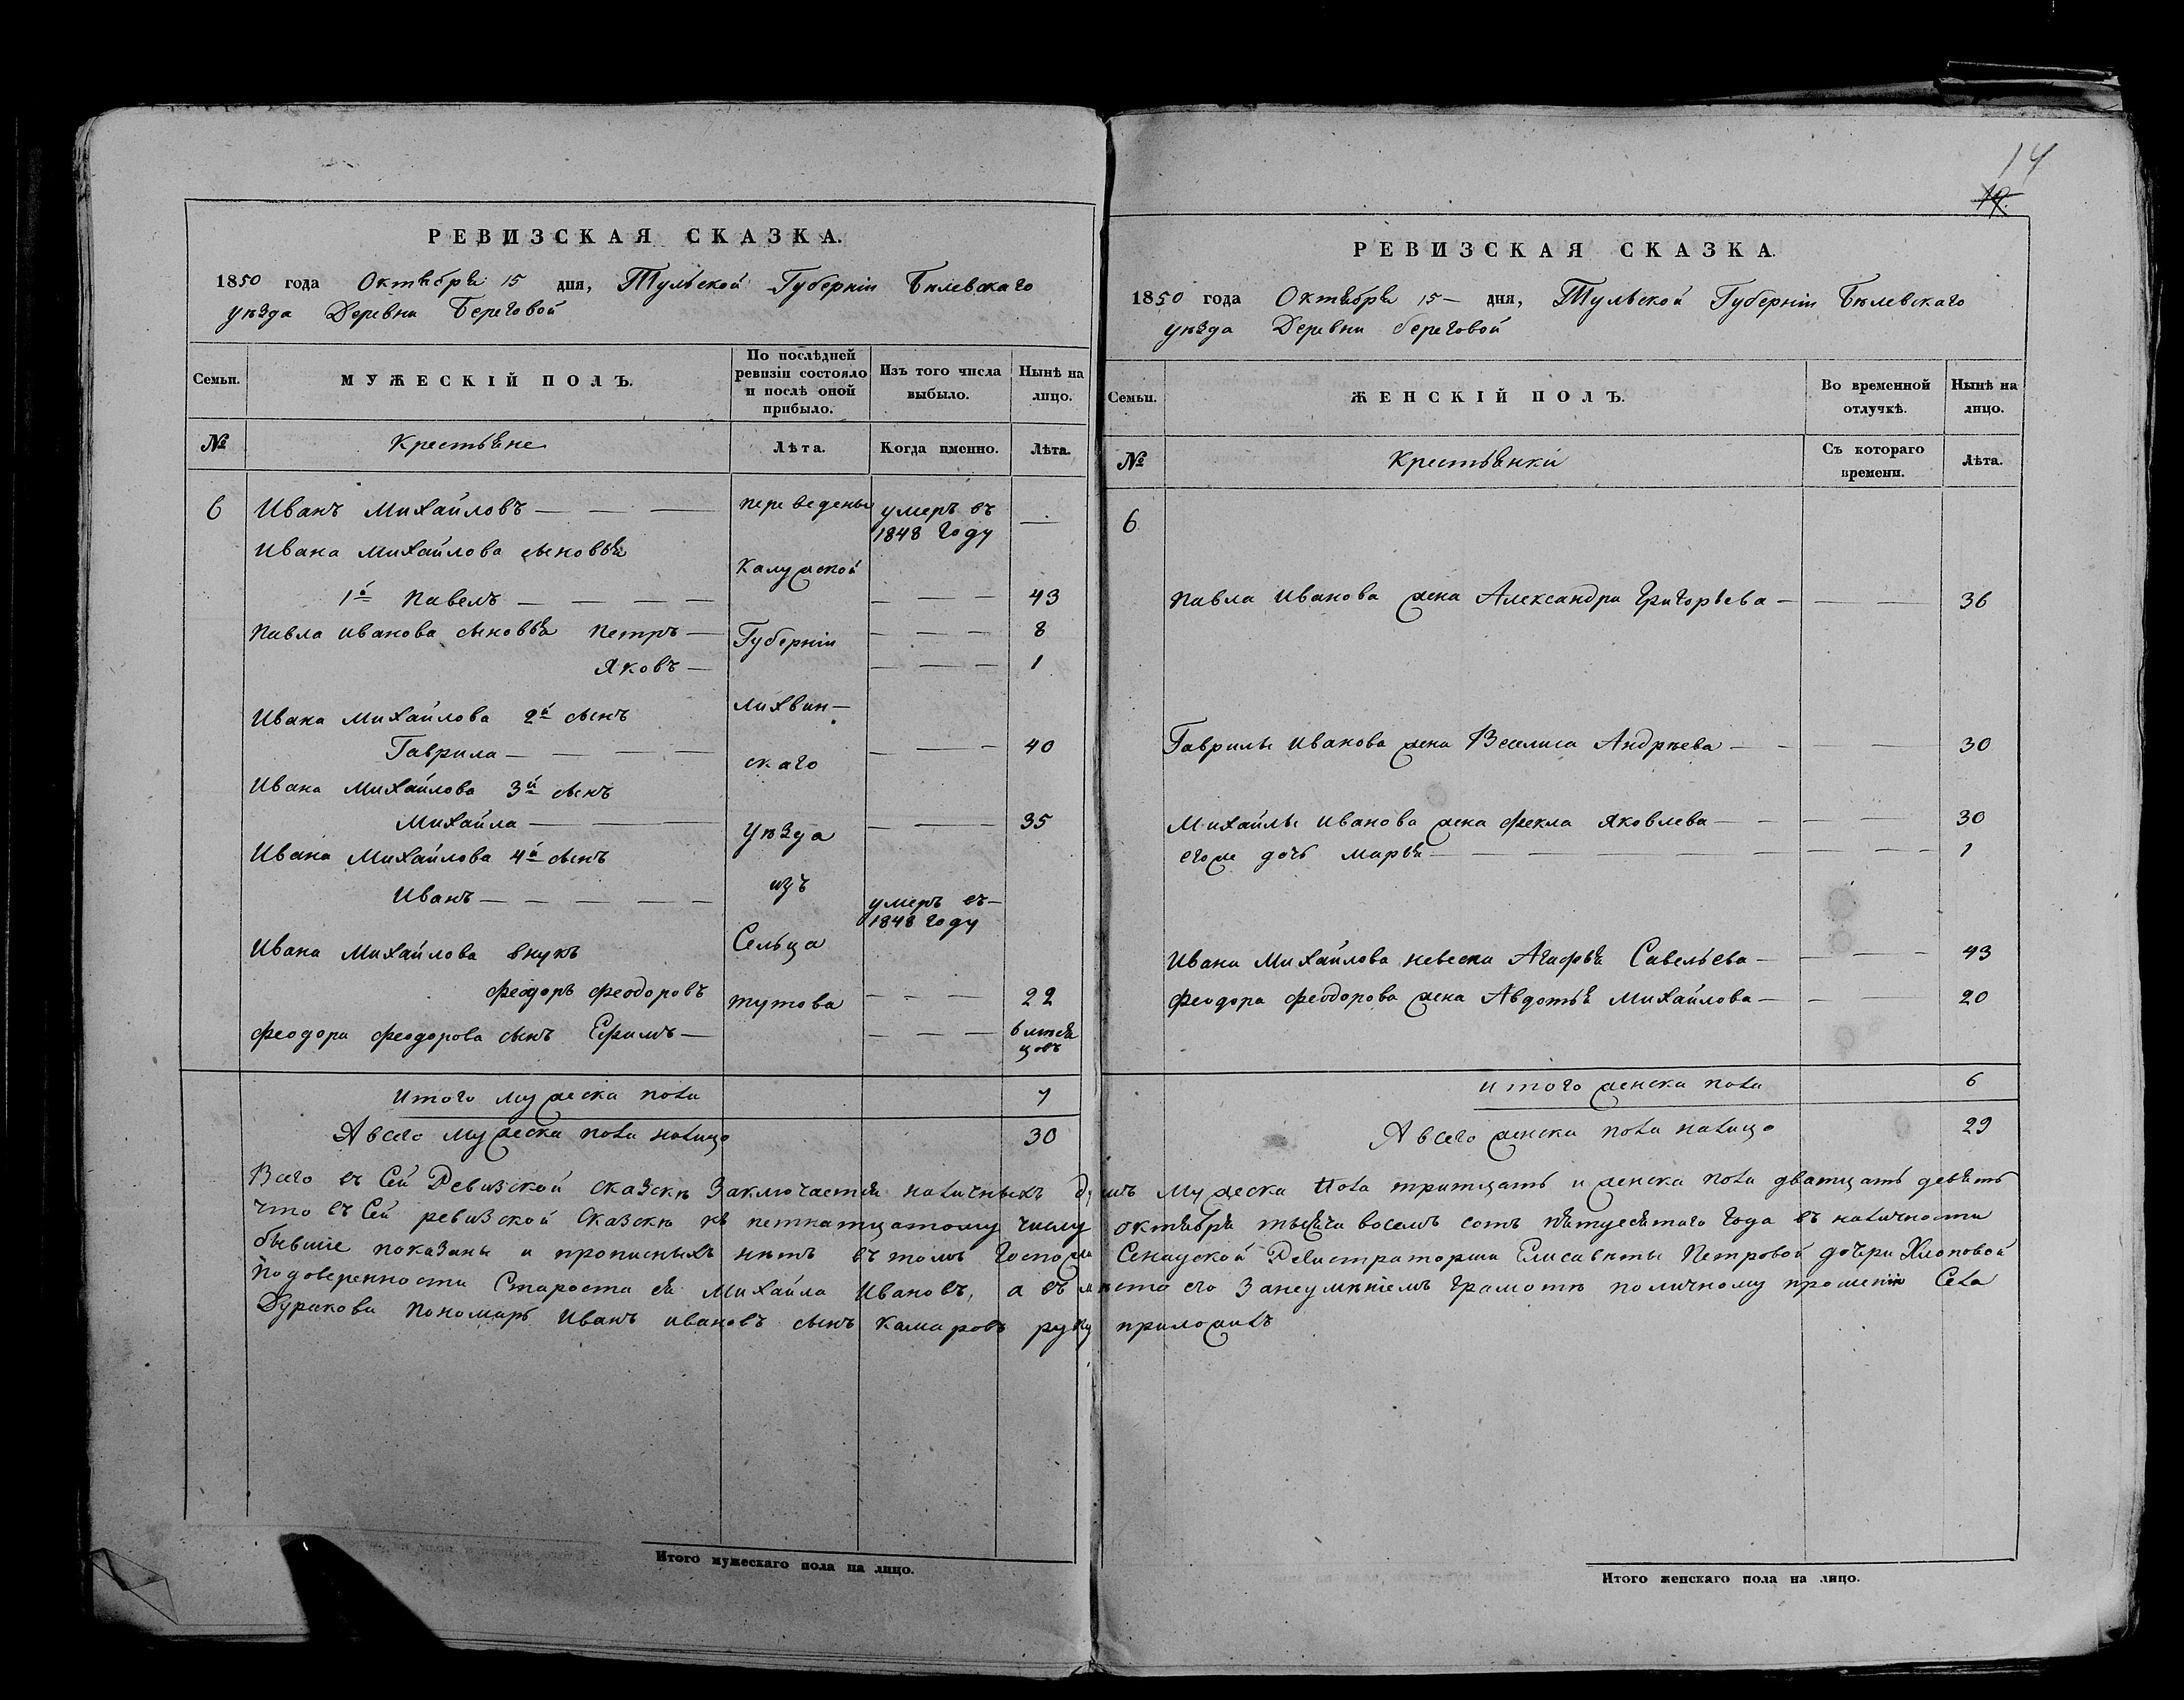 14
14.
РЕВИЗСКАЯ СКАЗКА.
1850 года Октября 15 дня, Тульской Губерніи Бѣлевскаго
уѣзда Деревни Береговой
Семьи.
МУЖЕСКІЙ ПОЛЪ.
По послѣдней
ревизіи состояло
и послѣ оной
прибыло.
Изъ того числа
выбыло.
Нынѣ на
лицо.
№
Крестьяне
Лѣта.
Когда именно.
Лѣта.
6 Иванъ Михайловъ — — — переведены умеръ въ —
1848 году
Ивана Михайлова сыновья
Калужской
1й Павелъ — — — — — — — 43
Павла Иванова сыновья Петръ — Губерніи — — — 8
Яковъ — — — — 1
Ивана Михайлова 2й сынъ лихвин—
Гаврила — — — — — — — 40
скаго
Ивана Михайлова 3й сынъ
Михайла — — — уѣзда — — — 35
Ивана Михайлова 4й сынъ
Иванъ — — — — — изъ умеръ въ—
1848 году
Ивана Михайлова внукъ Сельца
Феодоръ Феодоровъ тутова — — — 22
Феодора Феодорова сынъ Ефимъ — — — — 6 мѣся
цовъ
Итого мужеска пола 7
А всего мужеска пола налицо 30
РЕВИЗСКАЯ СКАЗКА.
1850 года Октября 15 — дня, Тульской Губерніи Бѣлевскаго
уѣзда Деревни береговой
Семьи.
ЖЕНСКІЙ ПОЛЪ.
Во временной
отлучкѣ.
Нынѣ на
лицо.
№
Крестьянки
Съ котораго
времени.
Лѣта.
6
Павла Иванова жена Александра Григорьева — — — 36
Гаврилы Иванова жена Василиса Андрѣева — — — — 30
Михайлы Иванова жена Фекла Яковлева — — — — 30
егоже дочь Марья — — — — — — — — — 1
Ивана Михайлова невеска Агафья Савельева — — — — 43
Феодора Феодорова жена Авдотья Михайлова — — — 20
Итого женска пола 6
А всего женска пола налицо 29
Всего въ Сей Ревизской сказкѣ Заключается наличныхъ душъ мужеска Пола тритцать и женска пола дватцать девять
что въ Сей ревизской Сказкѣ къ петнатцатому числу октября тысяча восемь сотъ пятдесятаго года въ наличности
бывшіе показаны и прописныхъ нѣтъ въ томъ Госпожи Сенацкой Регистраторши Елисаветы Петровой дочери Хлоповой
подоверенности Староста ея Михайла Ивановъ, а въ мѣсто его Занеумѣніемъ грамотѣ поличному прошенію Села
Дуракова пономарь Иванъ ивановъ сынъ Камаровъ руку приложилъ
Итого мужескаго пола на лицо.
Итого женскаго пола на лицо.